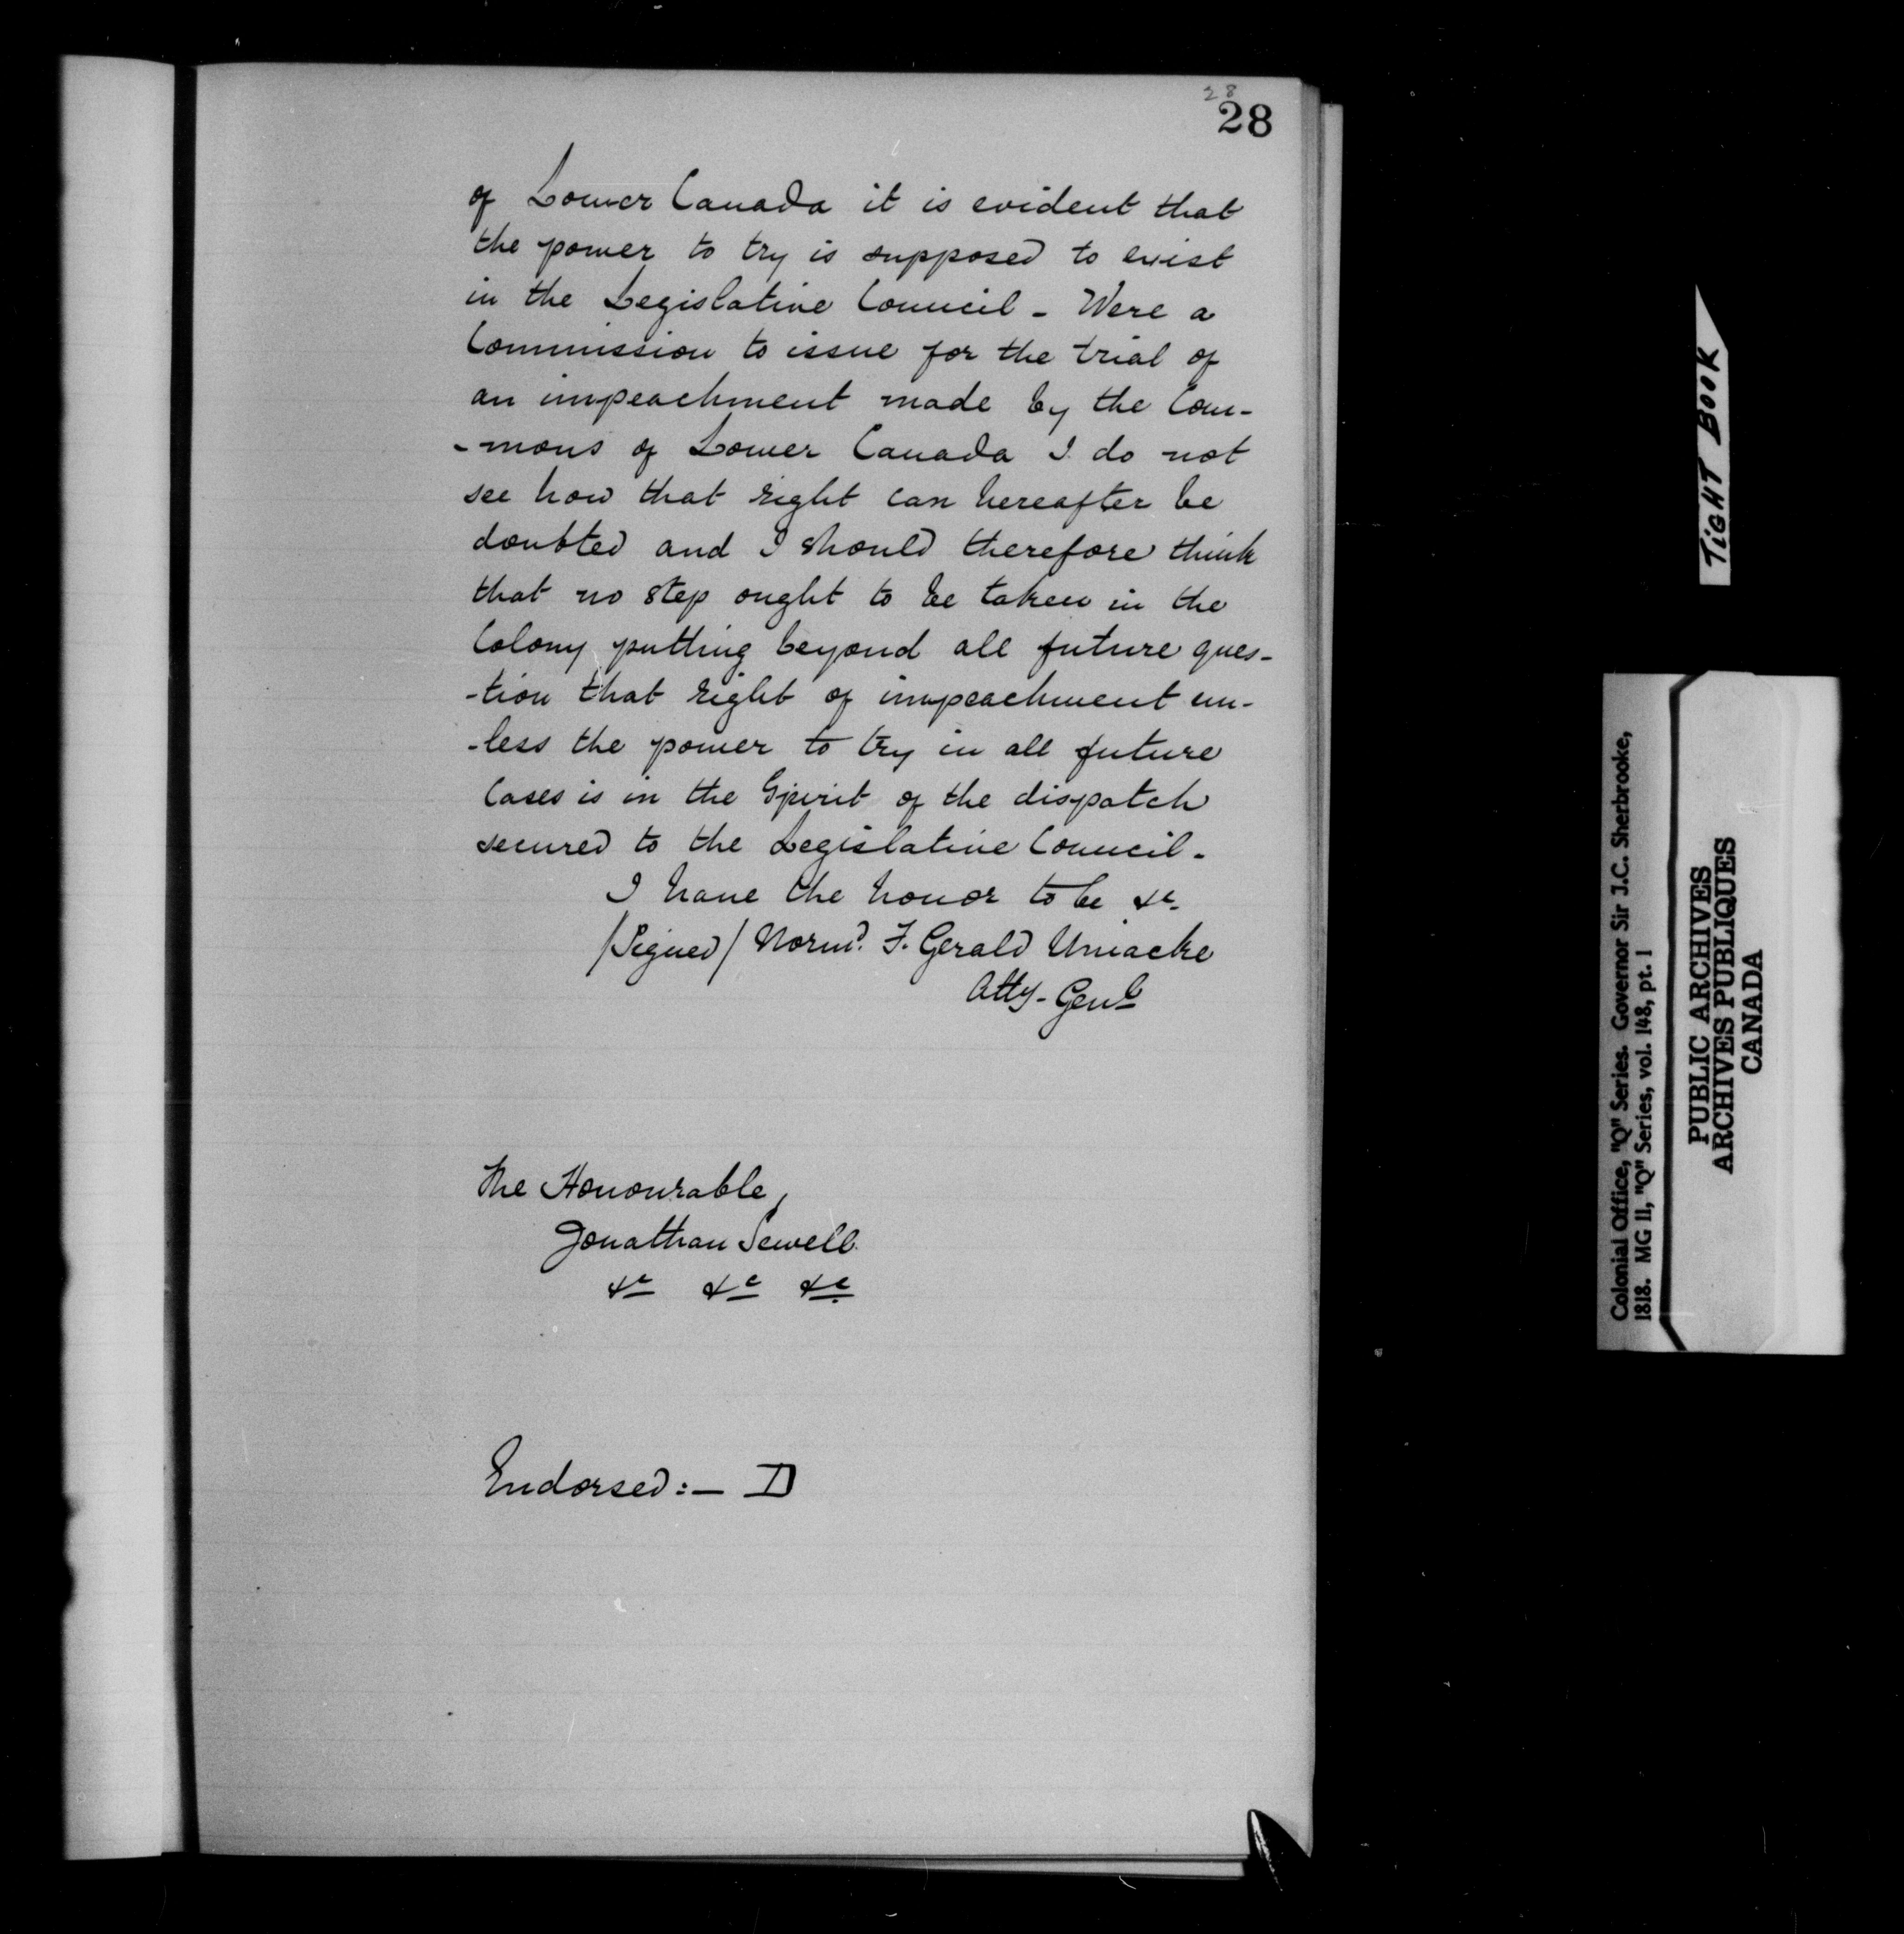 28
28
of Lower Canada it is evident that
the power to try is supposed to exist
in the Legislative Council - Were a
Commission to issue for the trial of
an impeachment made by the Com-
-mons of Lower Canada I do not
see how that right can hereafter be
doubted and I should therefore think
that no step ought to be taken in the
Colony putting beyond all future ques-
-tion that right of impeachment un-
-less the power to try in all future
Cases is in the Spirit of the dispatch
secured to the Legislative Council.
I have the honor to be &c.
/Signed/ Normd. F. Gerald Uniacke
Atty-Genl
The Honourable,
Jonathan Sewell.
&c &c &c
Endorsed:- D
TIGHT BOOK
Colonial Office, "Q" Series. Governor Sir J.C. Sherbrooke,
1818. MG 11, "Q" Series, vol. 148, pt. 1
PUBLIC ARCHIVES
ARCHIVES PUBLIQUES
CANADA